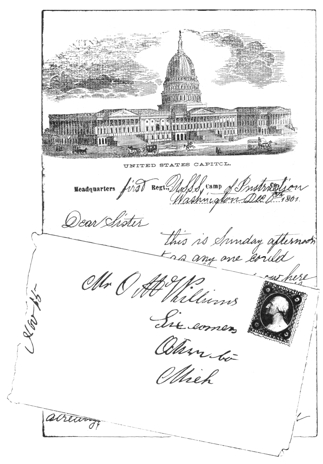 UNITED STATES CAPITOL.
Headquarters first Regt. U.S.S.S. Camp of Instruction
Washington Dec 1861.
Dear Sister
this is Sunday afternoon
as any one could
here
Mr O H Williams
Six corners
Ottawa Co
Mich
Nov 15